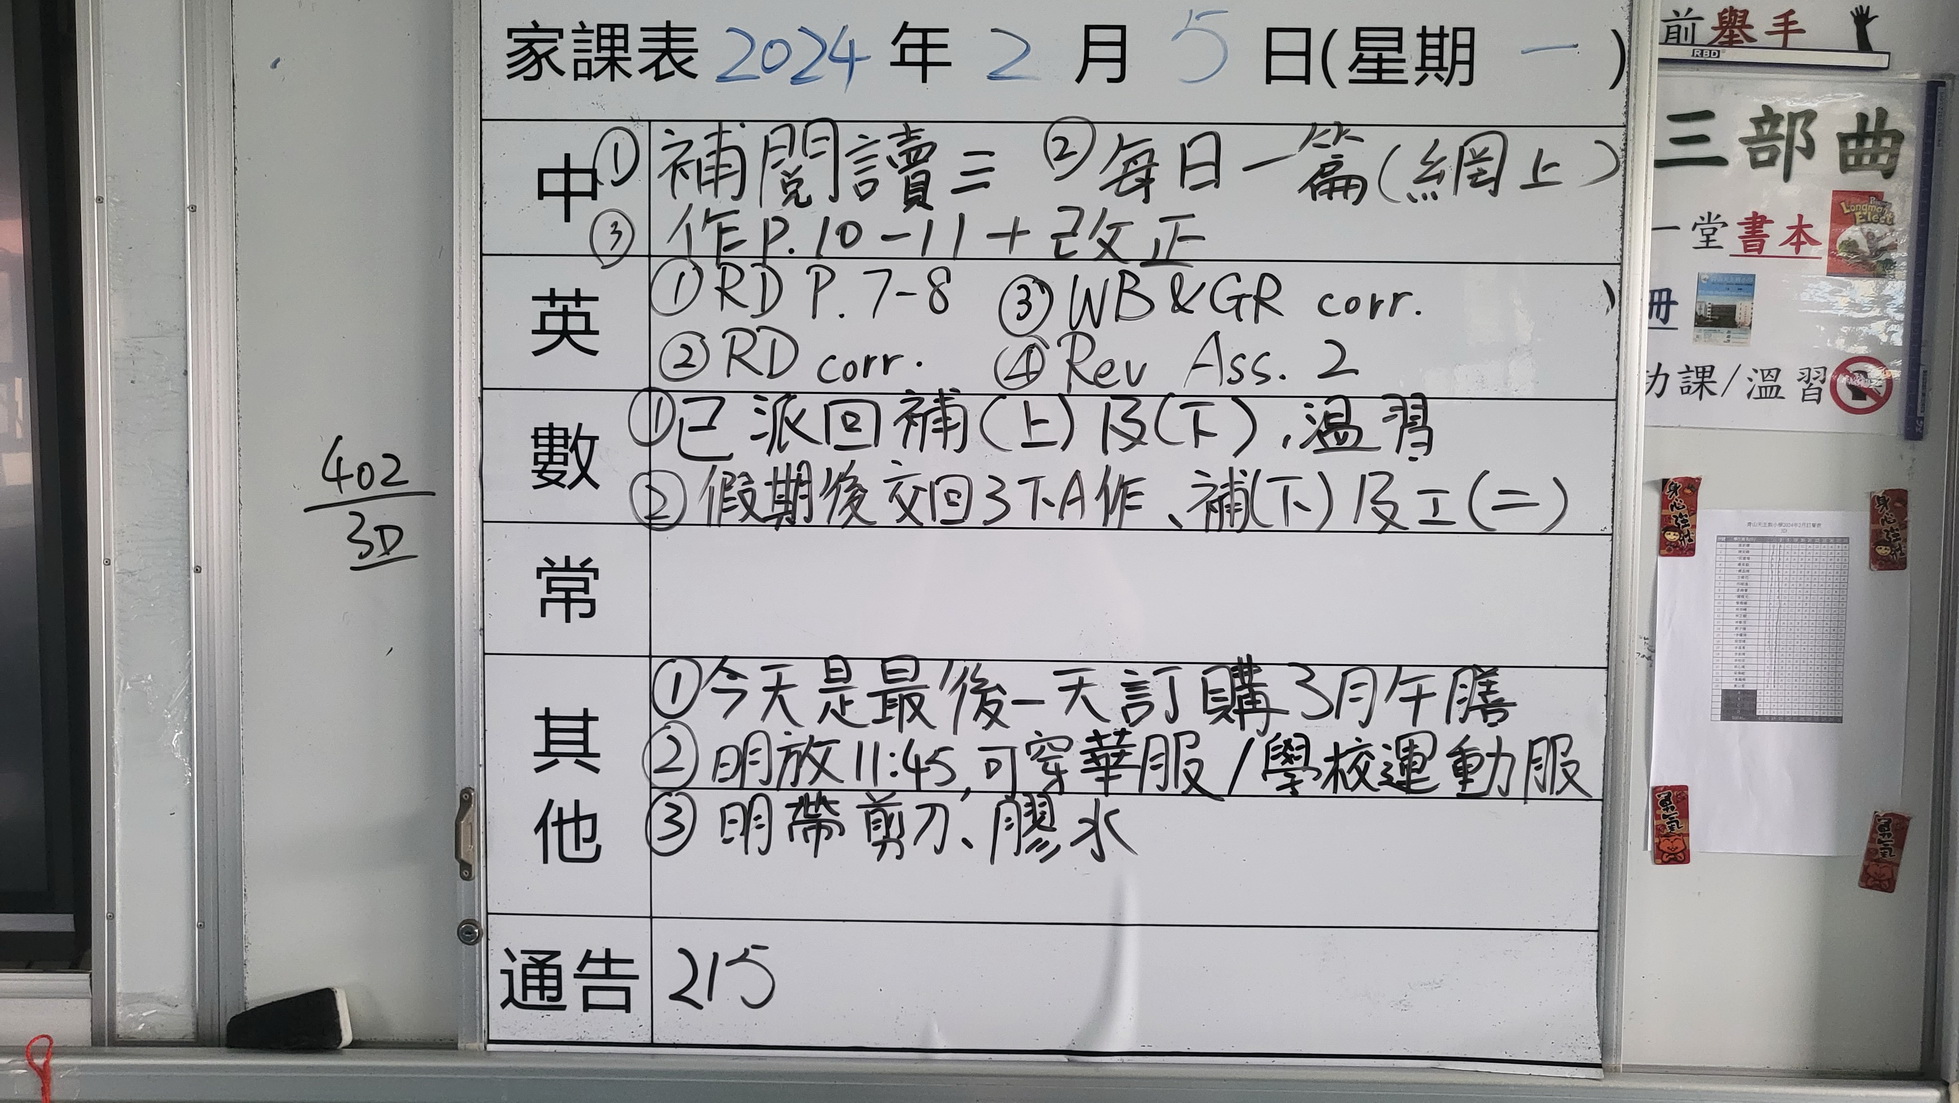 家課表 2024 年 2 月 5 日(星期 一 )
中 ① 補閱讀三 ② 每日一篇(網上)
③ 作P.10-11+改正
英 ① RD P. 7-8 ③ WB & GR corr.
② RD corr. ④ Rev Ass. 2
數 ① 已派回補(上)及(下),溫習
② 假期後交回3下A作、補(下)及工(二)
常
其他 ① 今天是最後一天訂購3月午膳
② 明放11:45,可穿華服/學校運動服
③ 明帶剪刀、膠水
通告 215
402
3D
前舉手
RBD
三部曲
一堂書本
Longman Elect
冊
功課/溫習
身心強壯
身心強壯
勇氣
勇氣